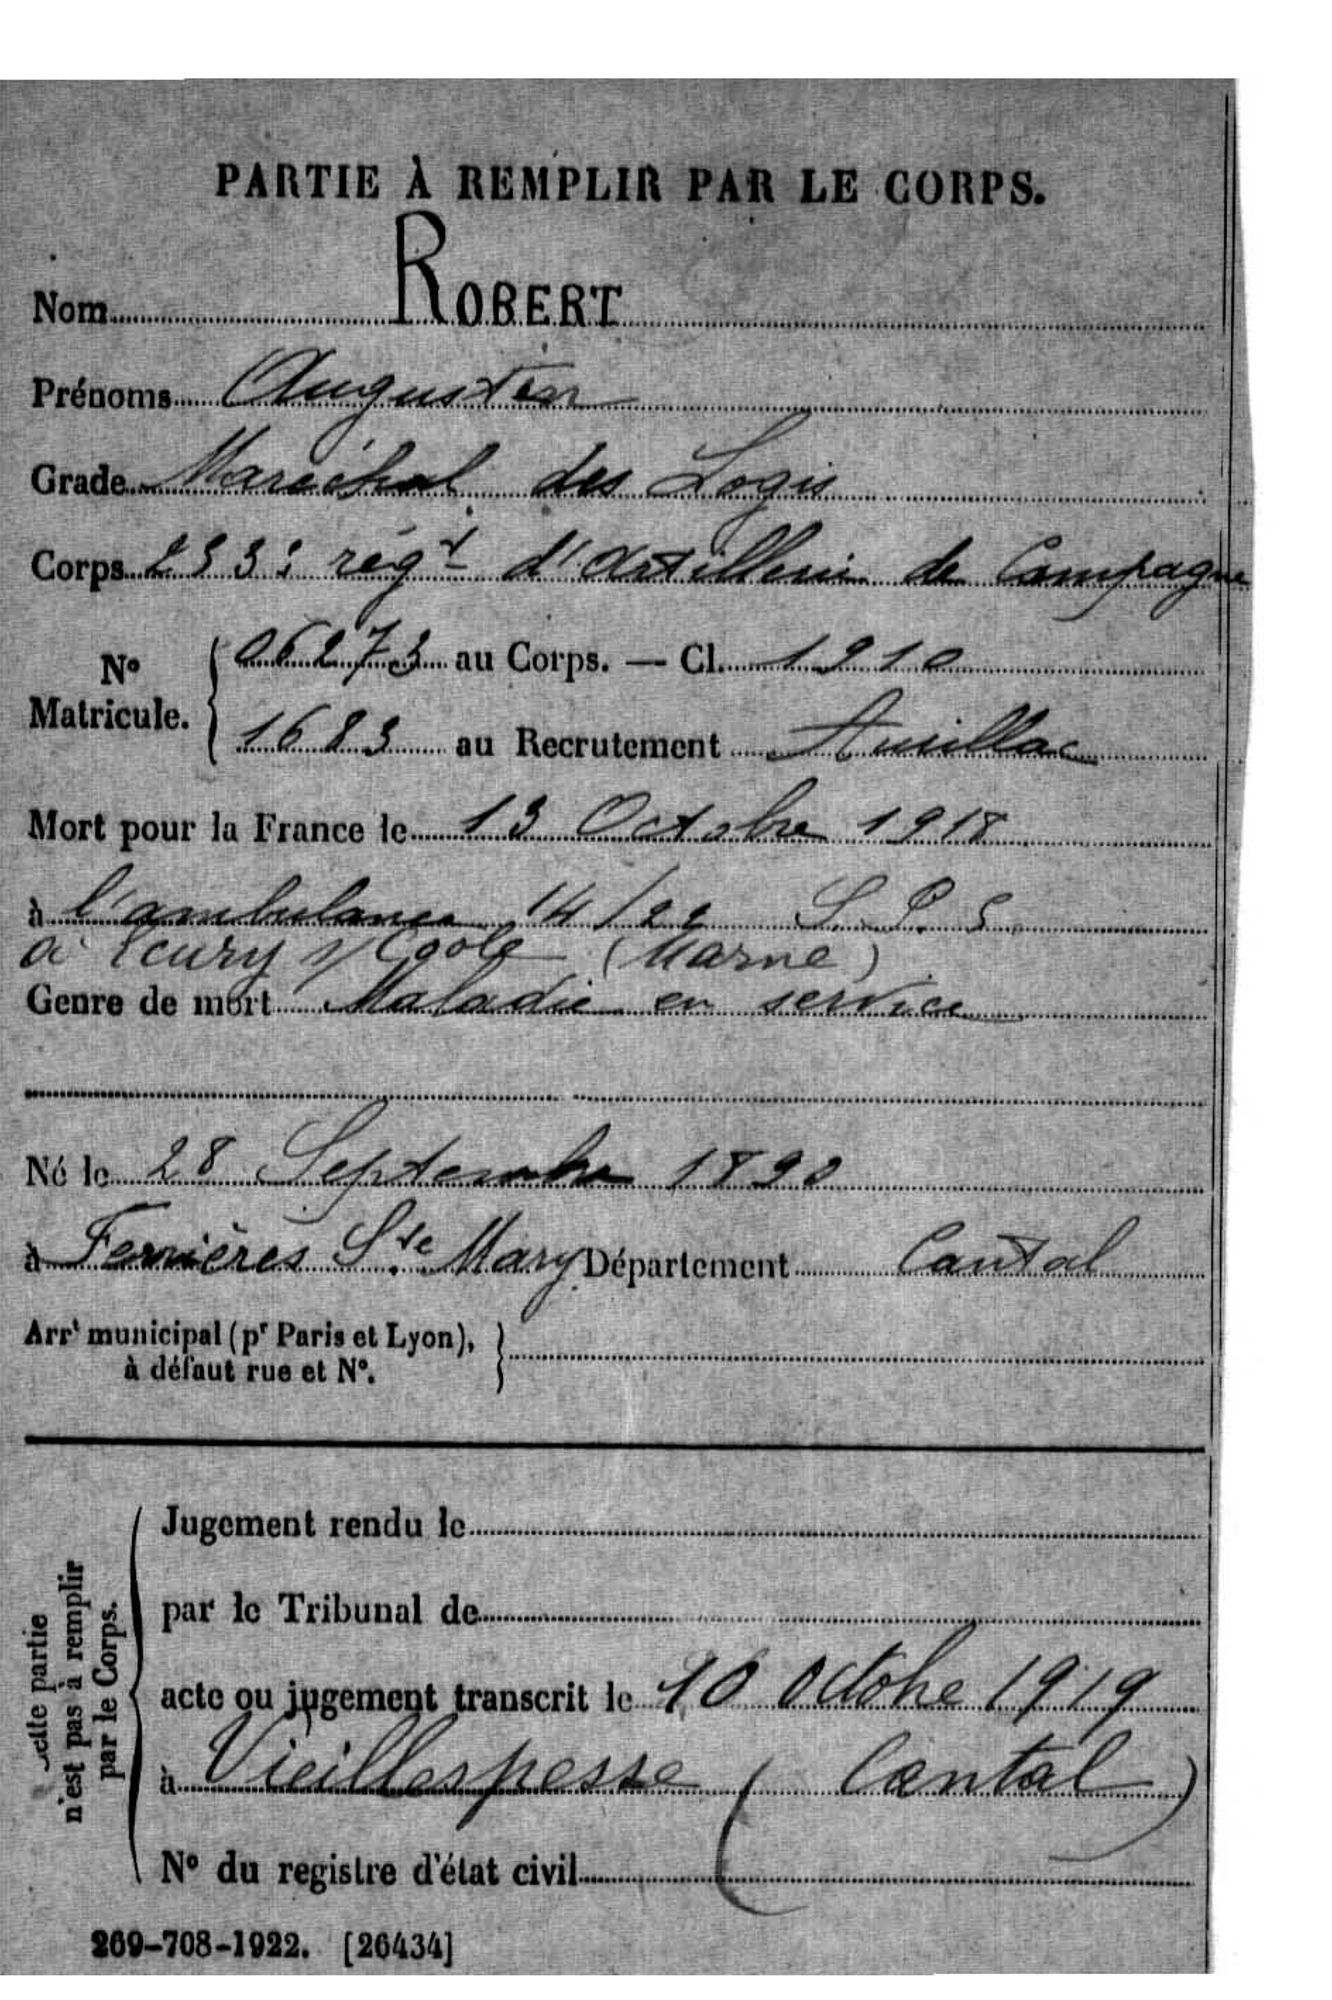 PARTIE À REMPLIR PAR LE CORPS.
Nom ROBERT
Prénoms Augustin
Grade Maréchal des Logis
Corps 233e régt d'Artillerie de Campagne
No Matricule. { 06273 au Corps. — Cl. 1910
1683 au Recrutement Aurillac
Mort pour la France le 13 Octobre 1918
à l'ambulance 14/22 S. P. 5
à Ecury s/ Coole (Marne)
Genre de mort Maladie en service
Né le 28 Septembre 1890
à Ferrières Ste Mary Département Cantal
Arrt municipal (pr Paris et Lyon),
à défaut rue et No.
Cette partie
n'est pas à remplir
par le Corps.
Jugement rendu le
par le Tribunal de
acte ou jugement transcrit le 10 Octobre 1919
à Vieillespesse (Cantal)
No du registre d'état civil
269-708-1922. [26434]